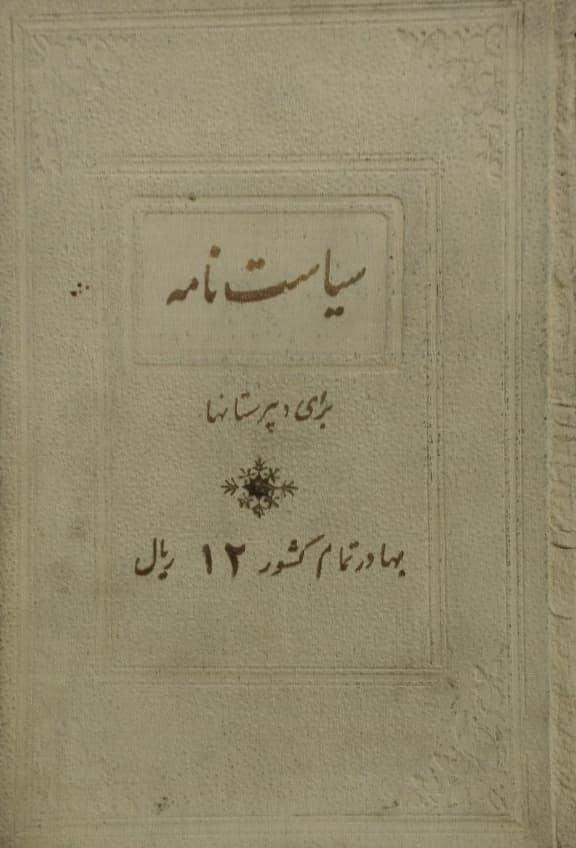 سیاست نامه
برای دبیرستانها
بها در تمام کشور ۱۲ ریال